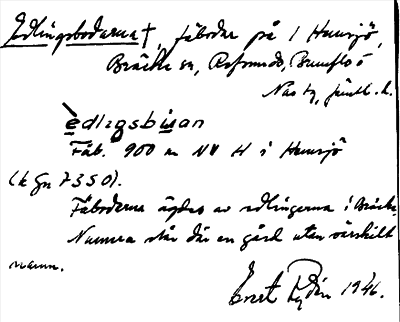 Edlingsbodarna†, fäbodar på 1 Hunsjö,
Bräcke sn, Refsunds, Brunflo o
Näs tg, Jämtl. l.
èdlıgsbuan
Fäb. 900 m NV H i Hunsjö
(k Gn 7350).
Fäbodarna ägdes av edlingarna i Bräcke.
Numera står där en gård utan särskilt
namn.
Evert Rydén 1946.